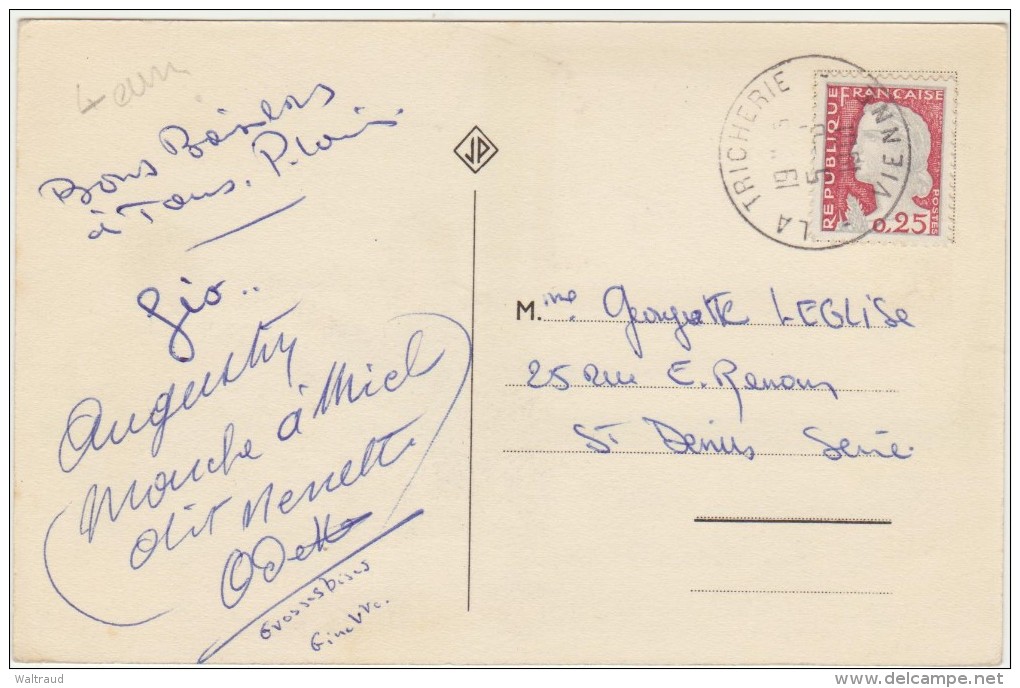 Bons Baisers
à Tous. P. Louis
Gio..
Augustin
Mouche à Miel
dit Nenette
Odette
Grosses bises
Ginette.
JD
LA TRICHERIE
VIENNE
5
61
REPUBLIQUE FRANÇAISE
POSTES
0,25
M.me Georgette LEGLISE
25 rue E. Renan
St Denis Seine.
Waltraud